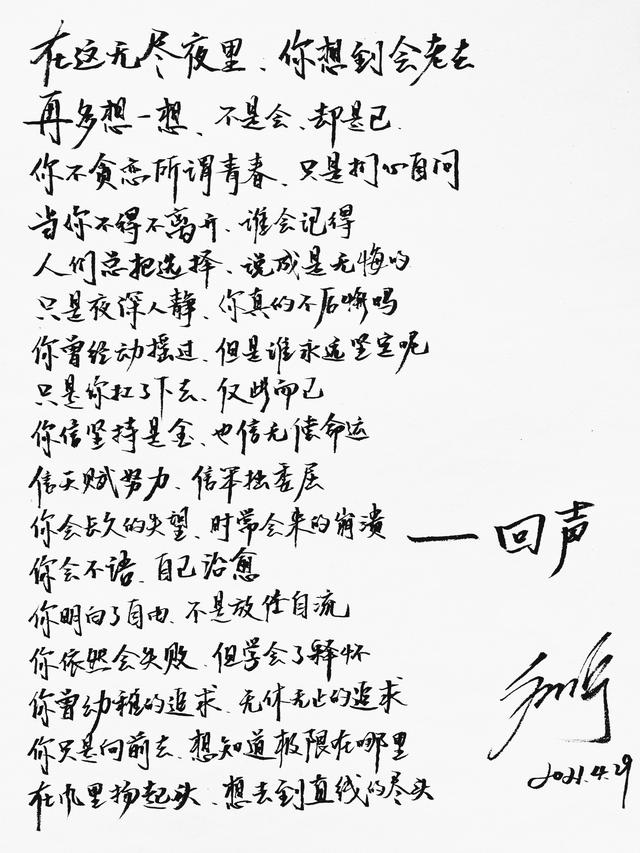 在这无尽夜里、你想到会老去
再多想一想、不是会、却是已.
你不贪恋所谓青春、只是扪心自问
当你不得不离开、谁会记得
人们总把选择、说成是无悔的
只是夜深人静、你真的不后悔吗
你曾经动摇过、但是谁永远坚定呢
只是你扛了下去、仅此而已
你信坚持是金、也信无偿命运
信天赋努力、信笨拙委屈
你会长久的失望、时常会来的崩溃
你会不语、自己治愈
你明白了自由、不是放任自流
你依然会失败、但学会了释怀
你曾幼稚的追求、无休无止的追求
你只是向前去、想知道极限在哪里
在风里扬起头、想去到直线的尽头
— 回声
2021.4.29